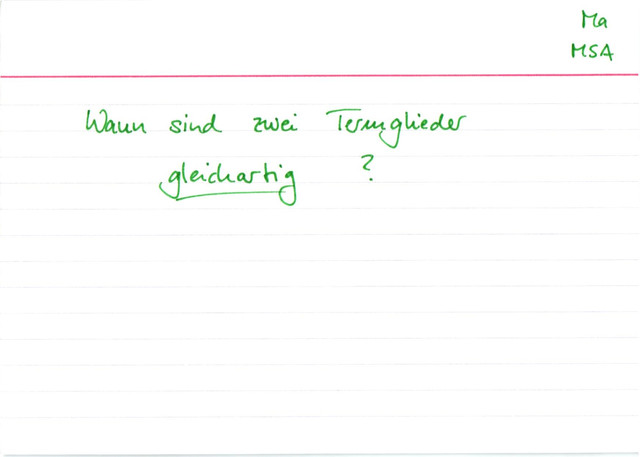 Ma
MSA
Wann sind zwei Termglieder
gleichartig ?